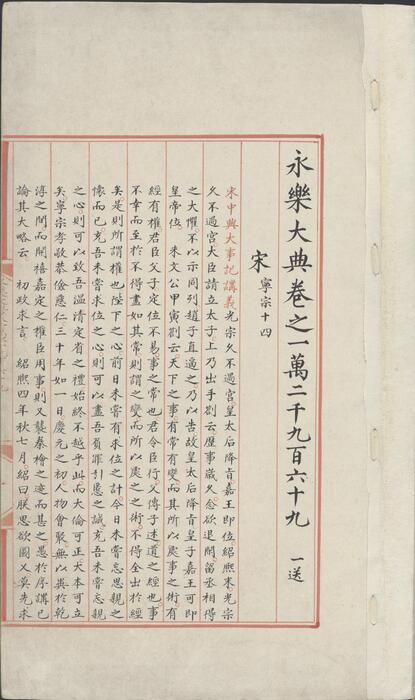 永樂大典卷之一萬二千九百六十九 一送
宋 寧宗十四
宋中興大事記講義光宗久不過宮皇太后降旨嘉王即位紹熙末光宗
久不過宮大臣請立太子上乃出手劄云歷事歲久念欲退閑留丞相得
之大懼不以示同列趙子直適之乃以告故皇太后降旨皇子嘉王可即
皇帝位 朱文公甲寅劄云天下之事有常有變而其所以處事之術有
經有權君臣父子定位不易事之常也君令臣行父傳子述道之經也事
不幸而至於不得盡如其常則謂之變而所以處之之術不得全出於經
矣是則所謂權也陛下之心前日未嘗有求位之計今日未嘗忘思親之
懷而已充吾未嘗求位之心則可以盡吾負罪引慝之誠充吾未嘗忘親
之心則可以致吾溫凊定省之禮始終不越乎此而大倫可正大本可立
矣寧宗孝敬恭儉應仁三十年如一日慶元之初人物會聚無以異於乾
淳之間而開禧嘉定之權臣用事則又襲秦檜之迹而甚之愚於序講已
論其大略云 初政求言 紹熙四年秋七月紹曰朕思欲圖乂莫先求